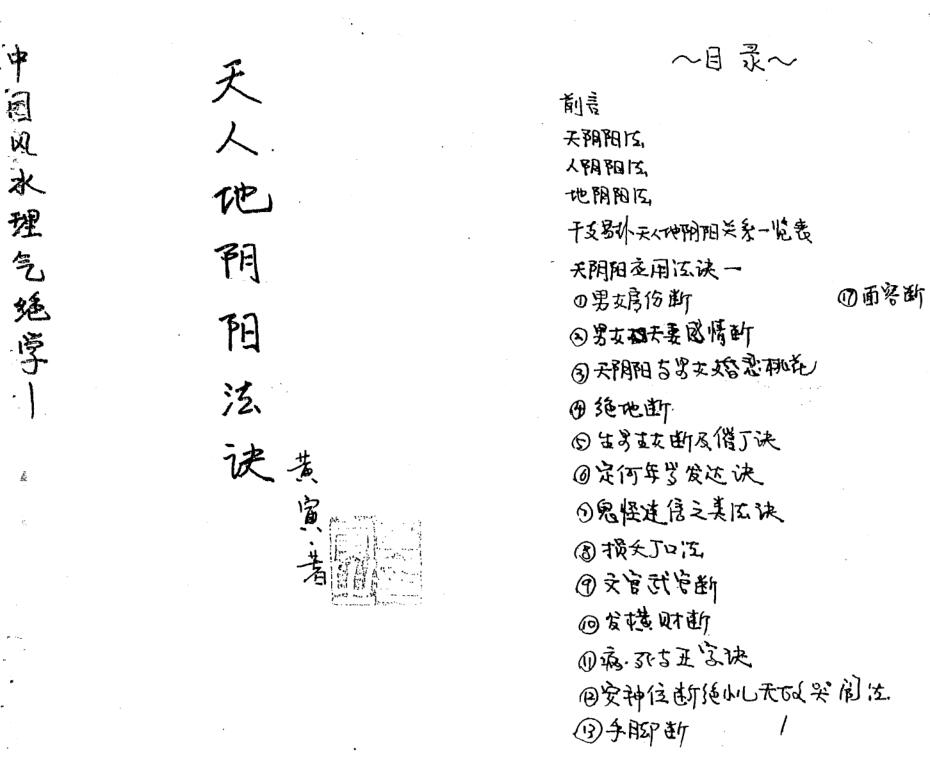 中国风水理气绝学一
天人地阴阳法诀
黄寅·著
～目录～
前言
天阴阳法
人阴阳法
地阴阳法
干支易卦天人地阴阳关系一览表
天阴阳应用法诀一
①男女房份断
⑰面容断
②男女夫妻感情断
③天阴阳与男女婚恋桃花
④绝地断
⑤生男生女断及催丁诀
⑥定何年岁发达诀
⑦鬼怪迷信之类法诀
⑧损夭丁口法
⑨文官武官断
⑩发横财断
⑪病·死与丑字诀
⑫安神位断绝小儿无故哭闹法
⑬手脚断
1